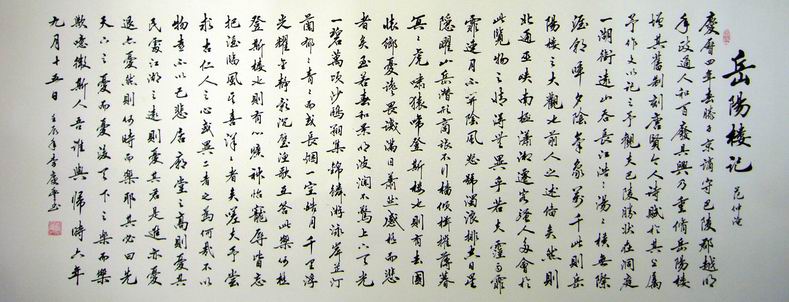 岳陽楼记
范仲淹
慶曆四年春滕子京謫守巴陵郡越明
年政通人和百廢具興乃重修岳陽楼
增其舊制刻唐賢今人诗賦於其上属
予作文以记之予觀夫巴陵勝状在洞庭
一湖銜遠山吞長江浩々湯々横無際
涯朝暉夕陰氣象萬千此則岳
陽楼之大觀也前人之述備矣然則
北通巫峡南極瀟湘遷客骚人多會於
此覽物之情得無異乎若夫霪雨霏
霏連月不开陰風怒號濁浪排空日星
隱曜山岳潜形商旅不行檣傾楫摧薄暮
冥々虎啸猿啼登斯楼也則有去國
懷鄉憂讒畏譏满目蕭然感极而悲
者矣至若春和景明波澜不驚上下天光
一碧萬頃沙鷗翔集錦鳞游泳岸芷汀
蘭郁々青々而或長烟一空皓月千里浮
光耀金静影沉璧渔歌互答此樂何极
登斯楼也則有心曠神怡寵辱皆忘
把酒臨風其喜洋々者矣嗟夫予嘗
求古仁人之心或異二者之為何哉不以
物喜不以己悲居廟堂之高則憂其
民處江湖之遠則憂其君是進亦憂
退亦憂然則何時而樂耶其必曰先
天下之憂而憂後天下之樂而樂
歟噫微斯人吾誰與歸時六年
九月十五日 壬辰年李慶